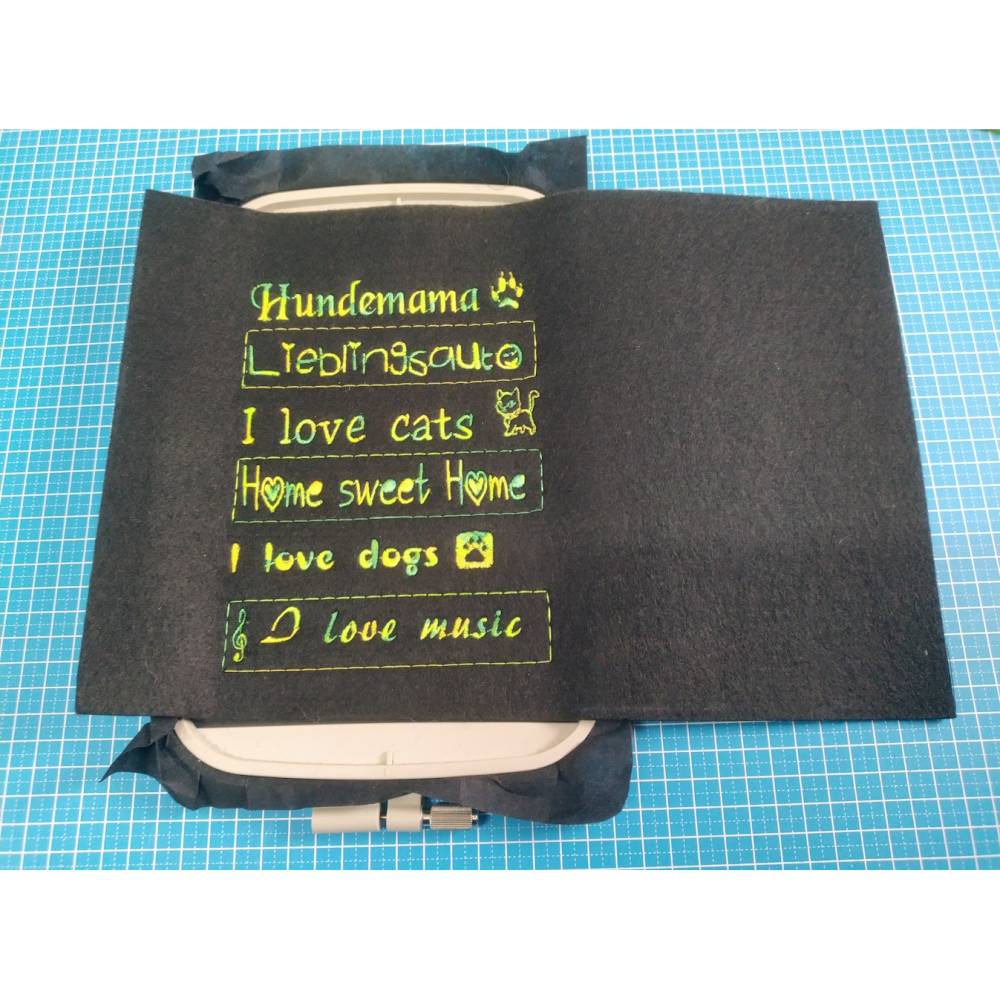 Hundemama
Lieblingsauto
I love cats
Home sweet Home
I love dogs
I love music